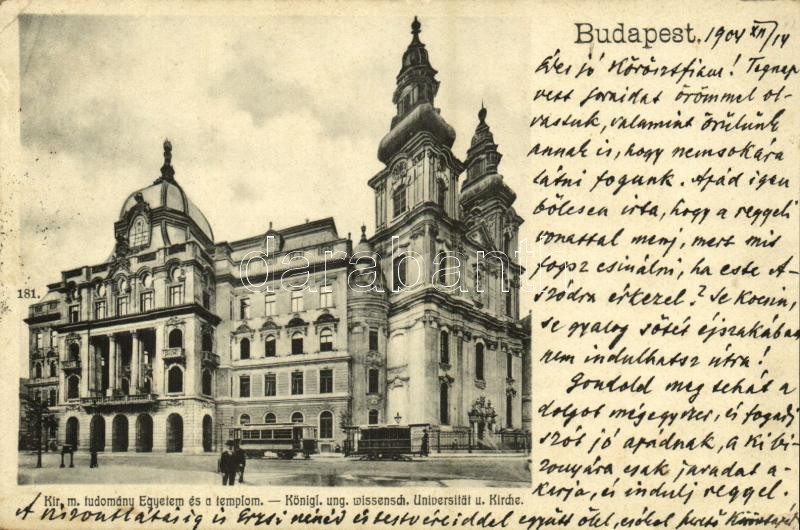 Budapest. 1904 XII/14
Édes jó Körösztfiam! Tegnap
vett soraidat örömmel ol-
vastuk, valamint örülünk
annak is, hogy nemsokára
látni fogunk. Apád igen
bölcsen írta, hogy a reggeli
vonattal menj, mert mit
fogsz csinálni, ha este A-
szódra érkezel? Se kocsin,
se gyalog sötét éjszakában
nem indulhatsz útra!
Gondold meg tehát a
dolgot mégegyszer, és fogadj
szót jó apádnak, a ki bi-
zonyára csak javadat a-
karja, és indulj reggel.
181.
darabanth
Kir. m. tudomány Egyetem és a templom. — Königl. ung. wissensch. Universität u. Kirche.
A viszontlátásig is Erzsi nénéd és testvéreiddel együtt ölel, csókol